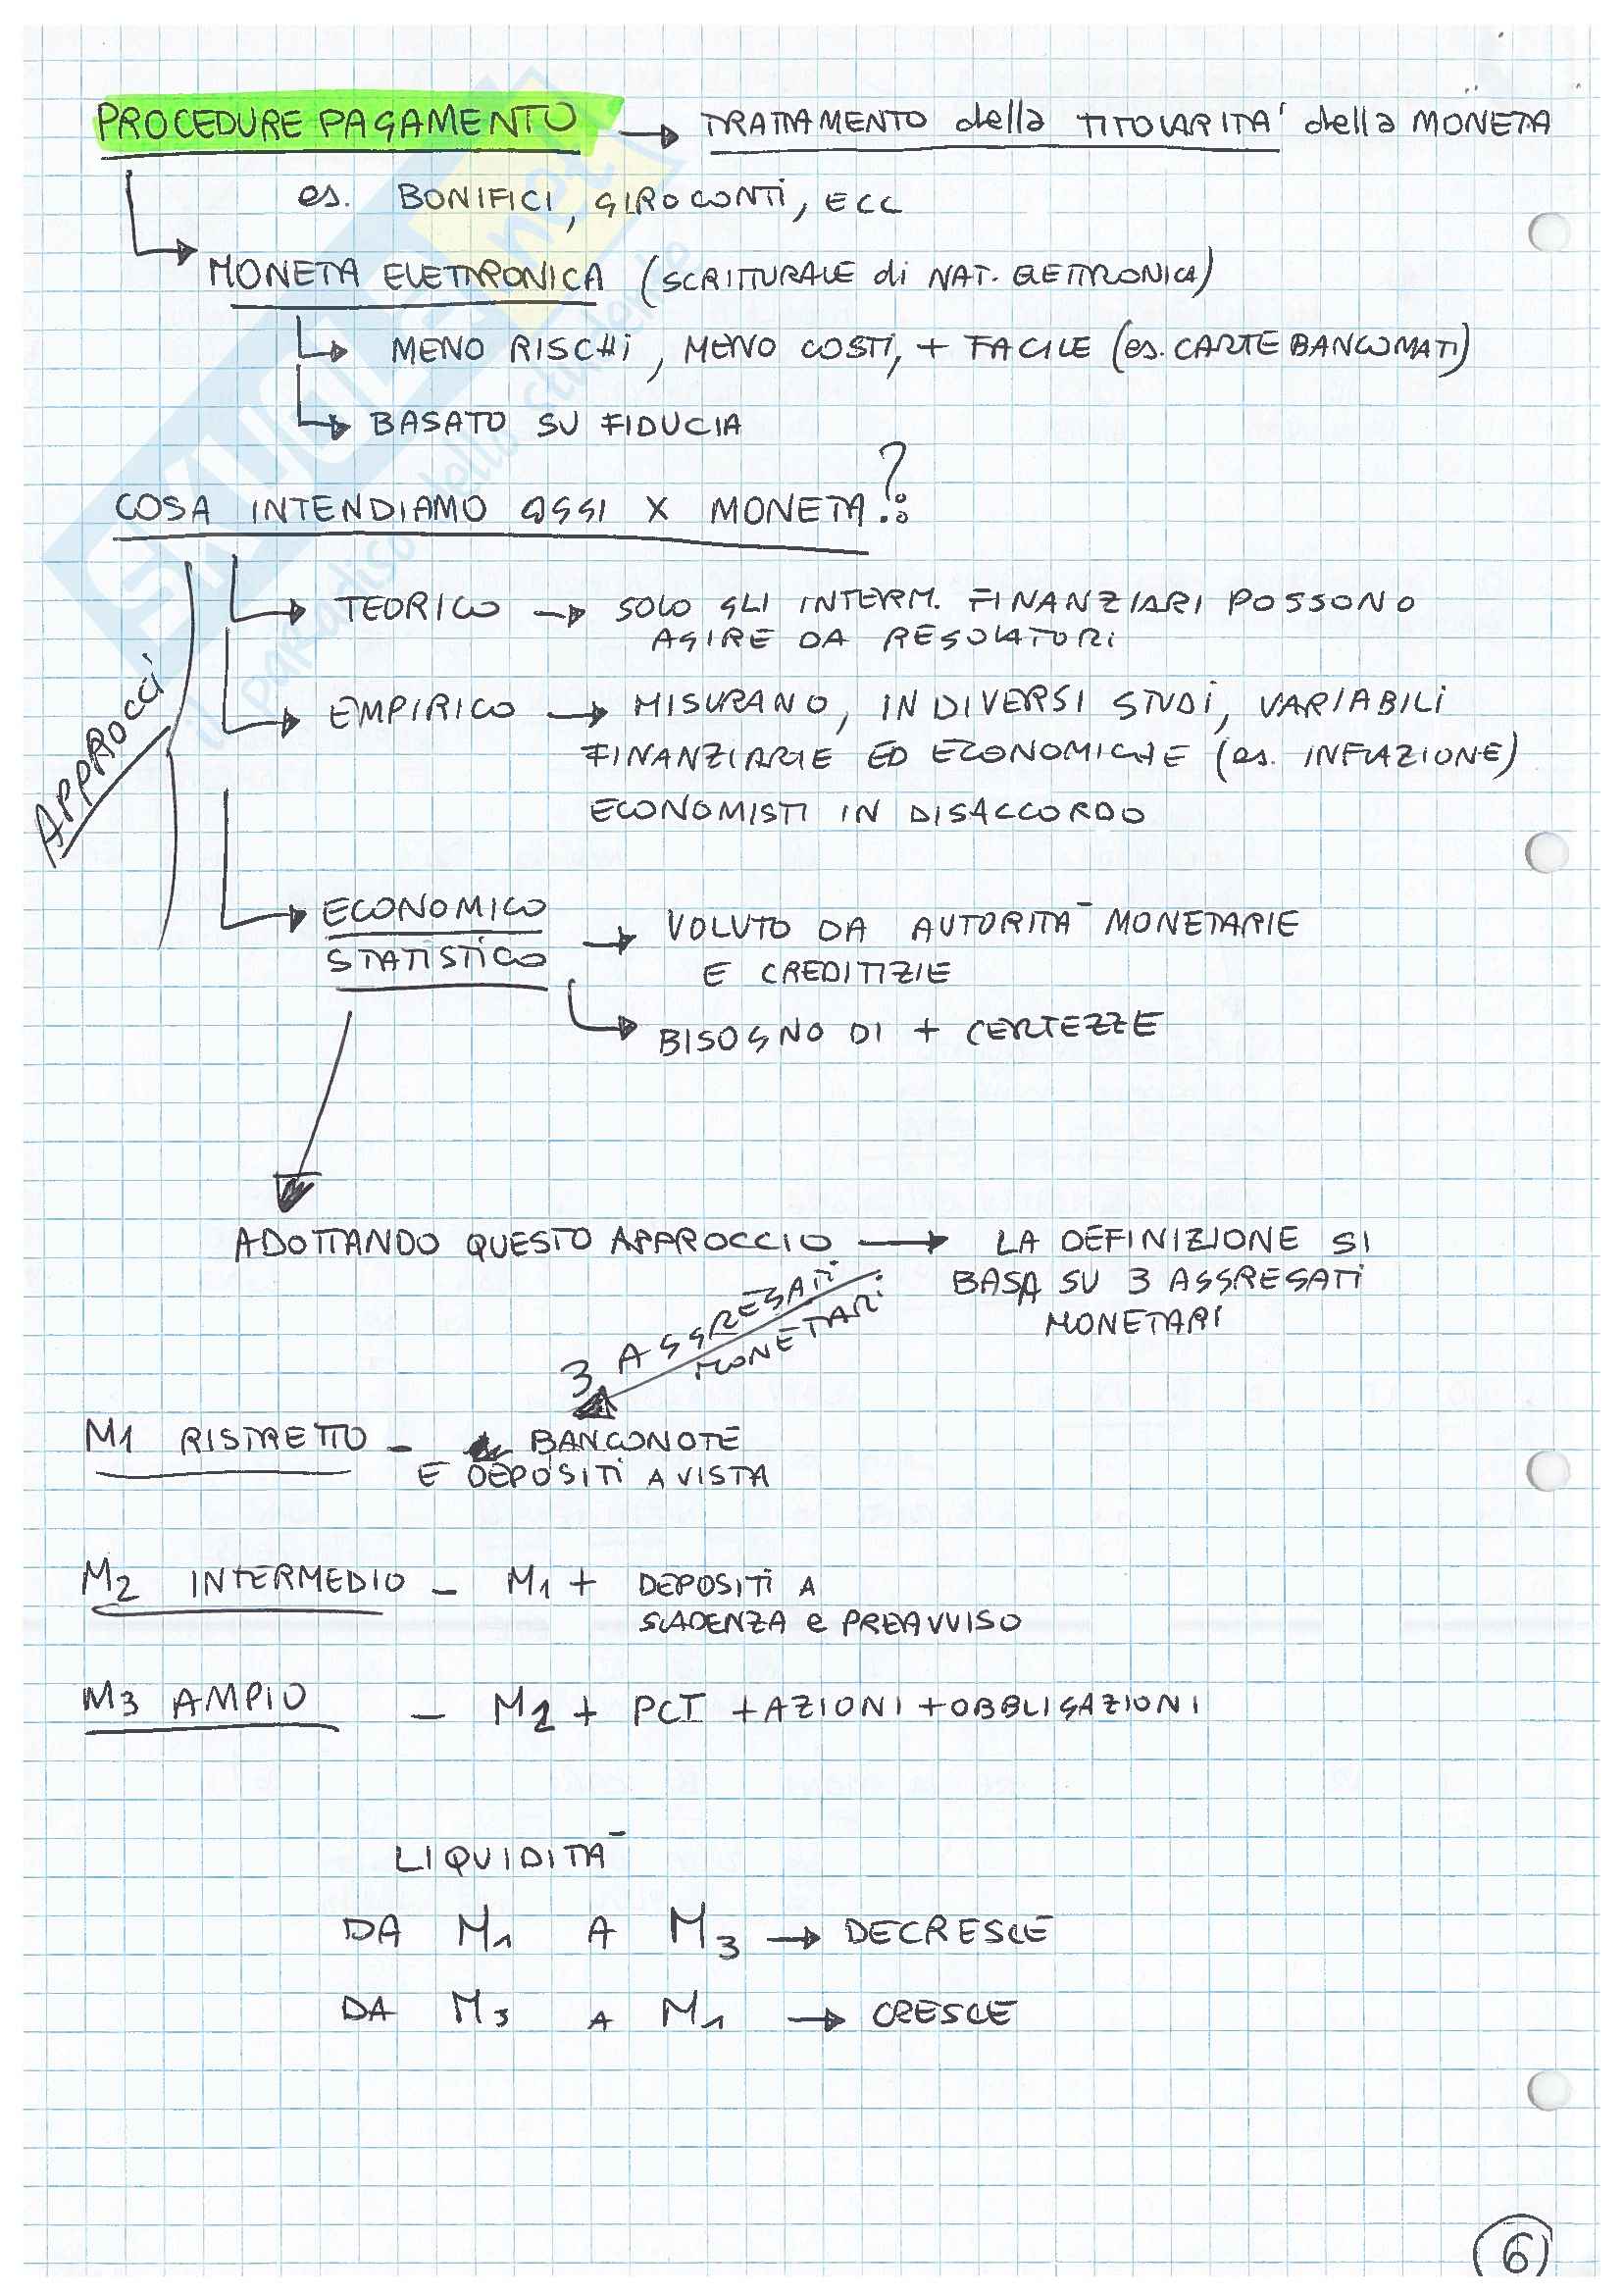 PROCEDURE PAGAMENTO → TRATTAMENTO della TITOLARITA' della MONETA
es. BONIFICI, GIROCONTI, ECC
MONETA ELETTRONICA (SCRITTURALE di NAT. ELETTRONICA)
MENO RISCHI, MENO COSTI, + FACILE (es. CARTE BANCOMAT)
BASATO SU FIDUCIA
COSA INTENDIAMO OGGI X MONETA?
APPROCCI
TEORICO → SOLO GLI INTERM. FINANZIARI POSSONO
AGIRE DA REGOLATORI
EMPIRICO → MISURANO, IN DIVERSI STUDI, VARIABILI
FINANZIARIE ED ECONOMICHE (es. INFLAZIONE)
ECONOMISTI IN DISACCORDO
ECONOMICO
STATISTICO → VOLUTO DA AUTORITÀ MONETARIE
E CREDITIZIE
BISOGNO DI + CERTEZZE
ADOTTANDO QUESTO APPROCCIO → LA DEFINIZIONE SI
BASA SU 3 AGGREGATI
MONETARI
3 AGGREGATI
MONETARI
M1 RISTRETTO - BANCONOTE
E DEPOSITI A VISTA
M2 INTERMEDIO - M1 + DEPOSITI A
SCADENZA e PREAVVISO
M3 AMPIO - M2 + PCT + AZIONI + OBBLIGAZIONI
LIQUIDITÀ
DA M1 A M3 → DECRESCE
DA M3 A M1 → CRESCE
6